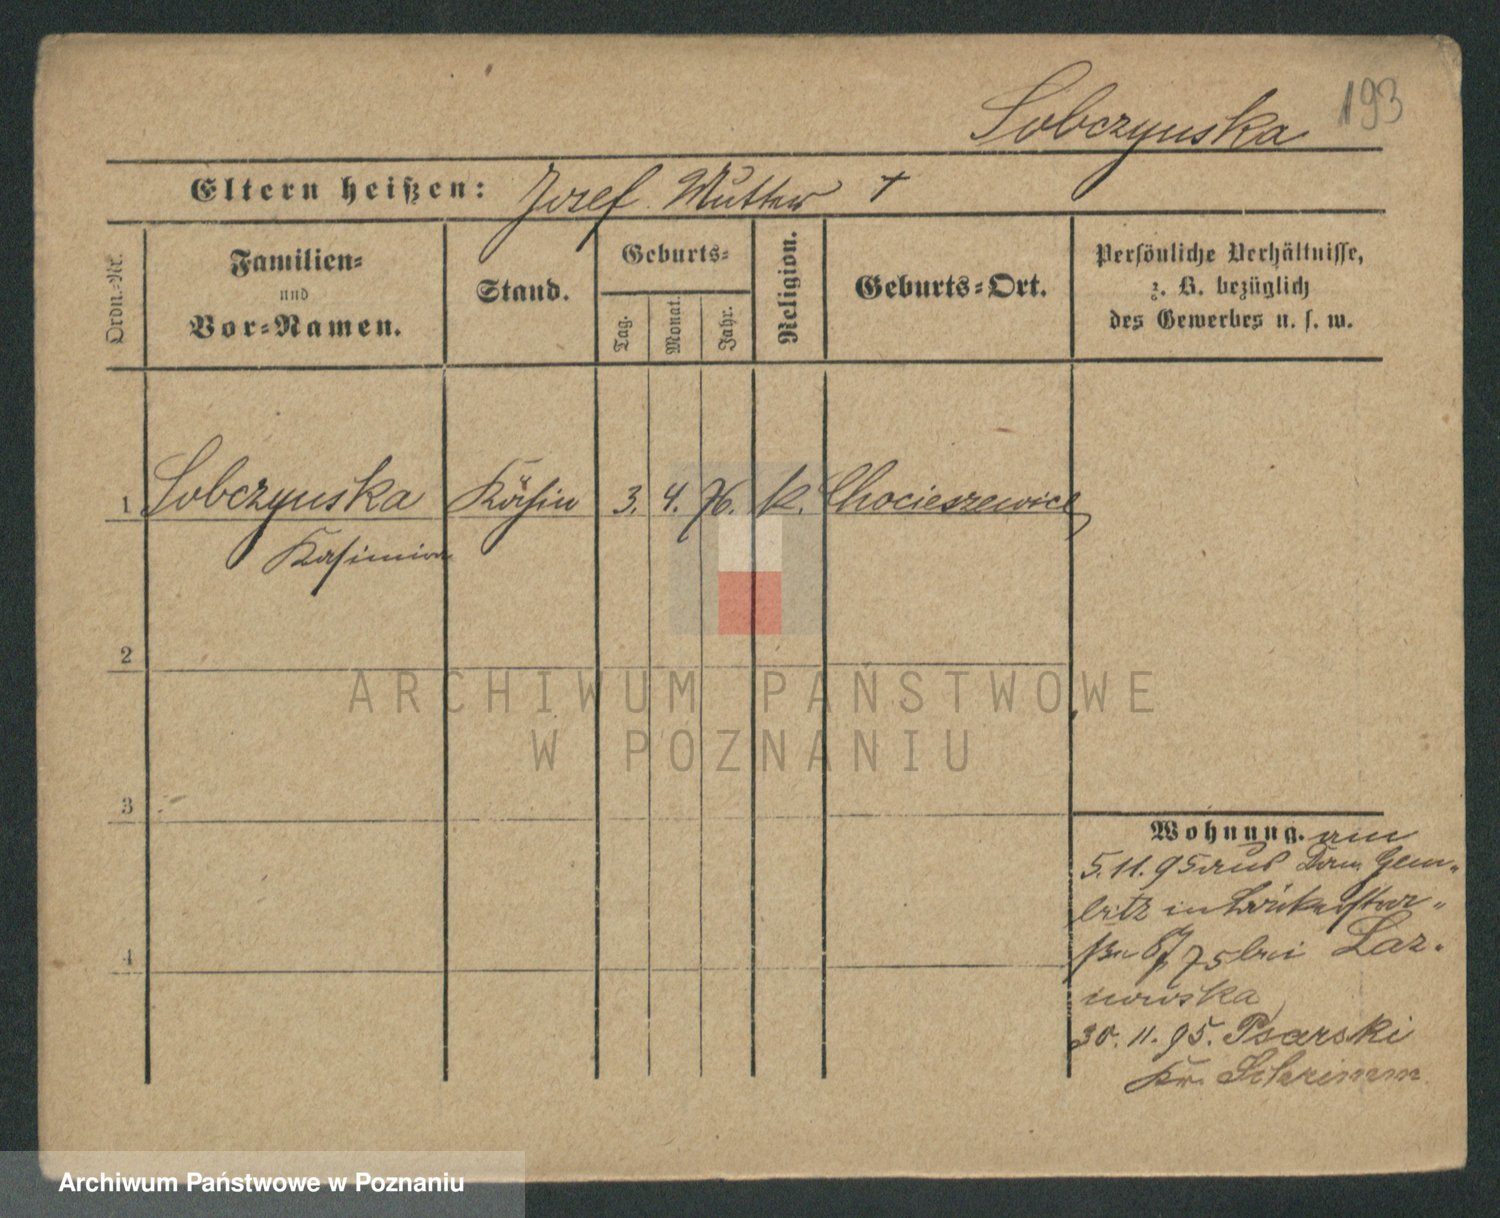 193
Sobczynska
Eltern heißen: Josef Mutter †
Ordn.-Nr.
Familien-
und
Vor-Namen.
Stand.
Geburts-
Tag.
Monat.
Jahr.
Religion.
Geburts-Ort.
Persönliche Verhältnisse,
z. B. bezüglich
des Gewerbes u. s. w.
1 Sobczynska Köchin 3. 4. 76. k. Chocieszewice
Kasimira
2
3
4
Wohnung. am
5.11.95 aus Dom. Gem-
bitz in
bei Laz-
nowska
30.11.95. Psarski
Kr. Schrimm
ARCHIWUM PAŃSTWOWE
W POZNANIU
Archiwum Państwowe w Poznaniu